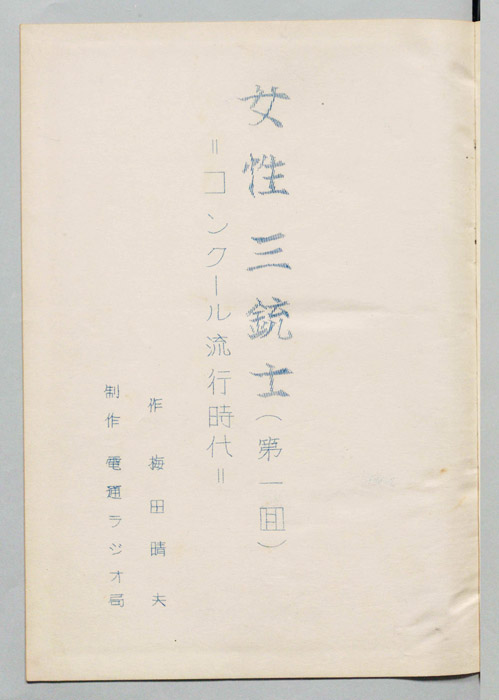 女性三銃士（第一回）
＝コンクール流行時代＝
作 梅田晴夫
制作 電通ラジオ局